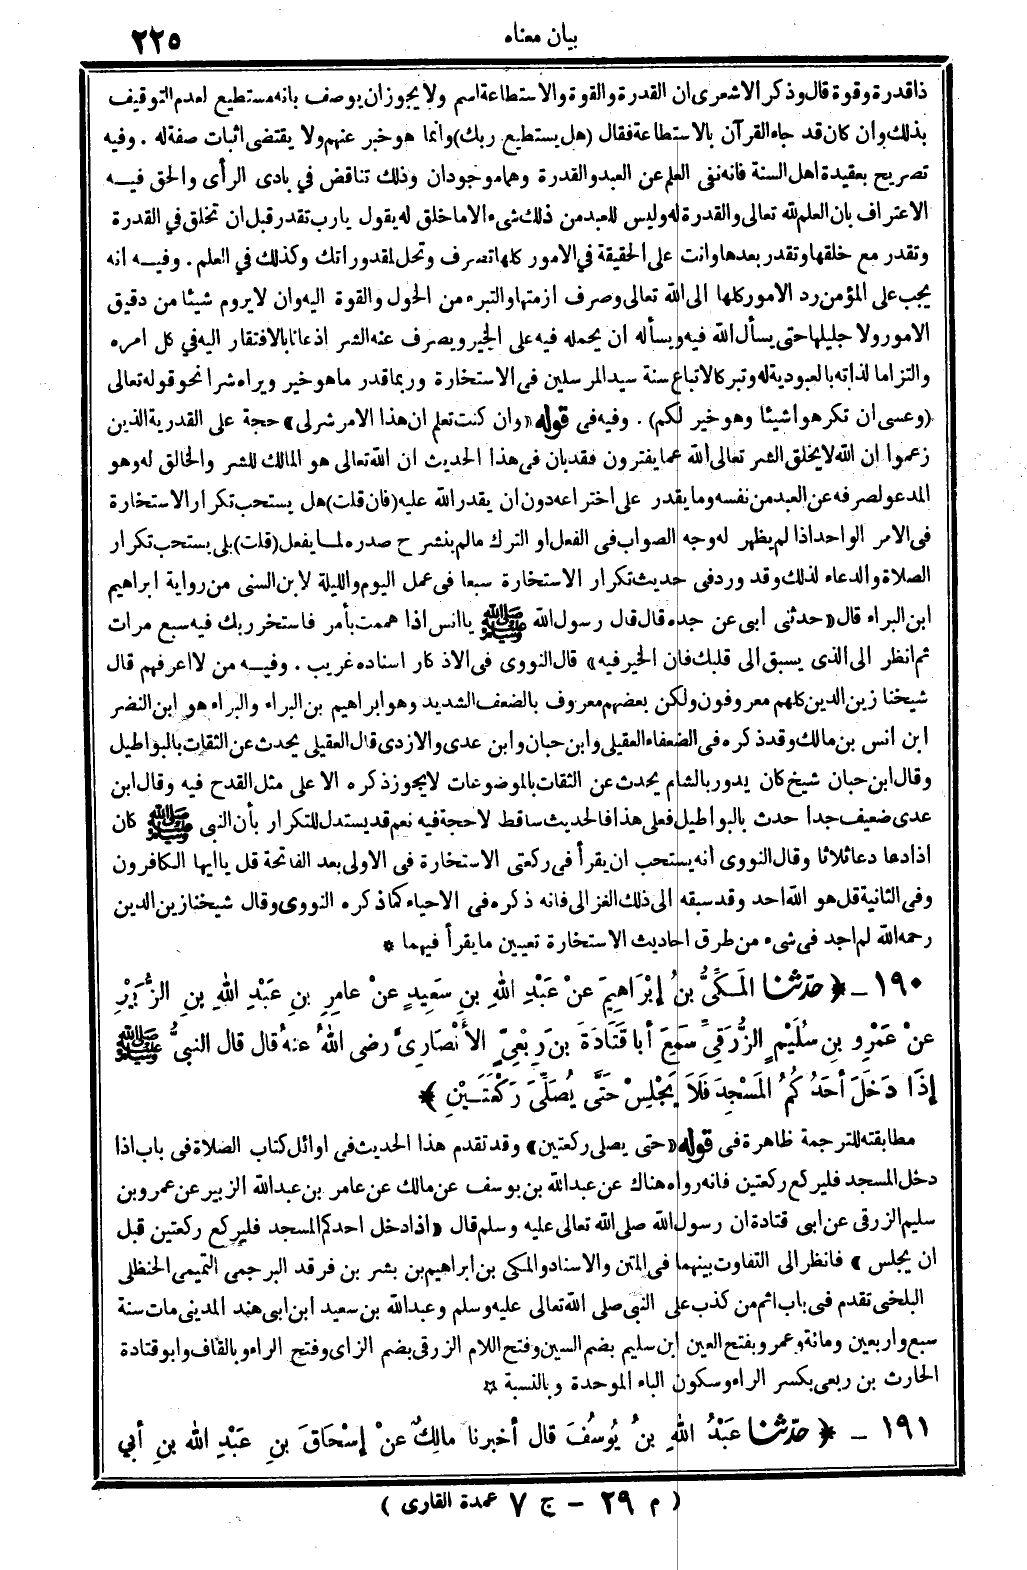 بيان معناه
٢٢٥
ذا قدرة وقوة قال وذكر الاشعرى ان القدرة والقوة والاستطاعة اسم ولا يجوز ان يوصف بانه مستطيع لعدم التوقيف
بذلك وان كان قد جاء القرآن بالاستطاعة فقال (هل يستطيع ربك) وانما هو خبر عنهم ولا يقتضى اثبات صفة له . وفيه
تصريح بعقيدة اهل السنة فانه نفى العلم عن العبد والقدرة وهما موجودان وذلك تناقض في بادى الرأى والحق فيه
الاعتراف بان العلم لله تعالى والقدرة له وليس للعبد من ذلك شىء الا ما خلق له يقول يارب تقدر قبل ان تخلق في القدرة
وتقدر مع خلقها وتقدر بعدها وانت على الحقيقة في الامور كلها تصرف وتحل لمقدوراتك وكذلك في العلم . وفيه انه
يجب على المؤمن رد الامور كلها الى الله تعالى وصرف ازمتها والتبرء من الحول والقوة اليه وان لا يروم شيئا من دقيق
الامور ولا جليلها حتى يسأل الله فيه ويسأله ان يحمله فيه على الخير ويصرف عنه الشر اذعانا بالافتقار اليه في كل امره
والتزاما لذاته بالعبودية له وتبركا لاتباع سنة سيد المرسلين فى الاستخارة وربما قدر ما هو خير ويراه شرا نحو قوله تعالى
(وعسى ان تكرهوا شيئا وهو خير لكم) . وفيه فى قوله «وان كنت تعلم ان هذا الامر شر لى» حجة على القدرية الذين
زعموا ان الله لا يخلق الشر تعالى الله عما يفترون فقد بان فى هذا الحديث ان الله تعالى هو المالك للشر والخالق له وهو
المدعو لصرفه عن العبد من نفسه وما يقدر على اختراعه دون ان يقدر الله عليه (فان قلت) هل يستحب تكرار الاستخارة
فى الامر الواحد اذا لم يظهر له وجه الصواب فى الفعل او الترك ما لم ينشرح صدره لما يفعل (قلت) بلى يستحب تكرار
الصلاة والدعاء لذلك وقد ورد فى حديث تكرار الاستخارة سبعا فى عمل اليوم والليلة لابن السنى من رواية ابراهيم
ابن البراء قال «حدثنى ابى عن جده قال قال رسول الله ﷺ يا انس اذا هممت بأمر فاستخر ربك فيه سبع مرات
ثم انظر الى الذى يسبق الى قلبك فان الخير فيه» قال النووى فى الاذكار اسناده غريب . وفيه من لا اعرفهم قال
شيخنا زين الدين كلهم معروفون ولكن بعضهم معروف بالضعف الشديد وهو ابراهيم بن البراء والبراء هو ابن النضر
ابن انس بن مالك وقد ذكره فى الضعفاء العقيلى وابن حبان وابن عدى والازدى قال العقيلى يحدث عن الثقات بالبواطيل
وقال ابن حبان شيخ كان يدور بالشام يحدث عن الثقات بالموضوعات لا يجوز ذكره الا على مثل القدح فيه وقال ابن
عدى ضعيف جدا حدث بالبواطيل فعلى هذا فالحديث ساقط لا حجة فيه نعم قد يستدل للتكرار بأن النبى ﷺ كان
اذا دعا دعا ثلاثا وقال النووى انه يستحب ان يقرأ فى ركعتى الاستخارة فى الاولى بعد الفاتحة قل يا ايها الكافرون
وفى الثانية قل هو الله احد وقد سبقه الى ذلك الغزالى فانه ذكره فى الاحياء كما ذكره النووى وقال شيخنا زين الدين
رحمه الله لم اجد فى شىء من طرق احاديث الاستخارة تعيين ما يقرأ فيهما *
١٩٠ ـ ﴿ حدّثنا المَكِّيُّ بنُ إبْرَاهِيمَ عنْ عَبْدِ اللهِ بنِ سَعِيدٍ عنْ عامِرِ بنِ عَبْدِ اللهِ بنِ الزُّبَيْرِ
عنْ عَمْرِو بنِ سُلَيْمٍ الزُّرَقِيِّ سَمِعَ أبا قَتَادَةَ بنَ رِبْعِيٍّ الأنْصَارِيَّ رضى اللهُ عنهُ قال قال النبيُّ ﷺ
إذَا دَخَلَ أحَدُكُمُ المَسْجِدَ فَلاَ يَجْلِسْ حَتَّى يُصَلِّىَ رَكْعَتَيْنِ ﴾
مطابقته للترجمة ظاهرة فى قوله «حتى يصلى ركعتين» وقد تقدم هذا الحديث فى اوائل كتاب الصلاة فى باب اذا
دخل المسجد فليركع ركعتين فانه رواه هناك عن عبد الله بن يوسف عن مالك عن عامر بن عبد الله الزبير عن عمرو بن
سليم الزرقى عن ابى قتادة ان رسول الله صلى الله تعالى عليه وسلم قال «اذا دخل احدكم المسجد فليركع ركعتين قبل
ان يجلس» فانظر الى التفاوت بينهما فى المتن والاسناد والمكى بن ابراهيم بن بشر بن فرقد البرجمى التميمى الحنظلى
البلخى تقدم فى باب اثم من كذب على النبى صلى الله تعالى عليه وسلم وعبد الله بن سعيد ابن ابى هند المدينى مات سنة
سبع واربعين ومائة وعمرو بفتح العين ابن سليم بضم السين وفتح اللام الزرقى بضم الزاى وفتح الراء وبالقاف وابو قتادة
الحارث بن ربعى بكسر الراء وسكون الباء الموحدة وبالنسبة *
١٩١ ـ ﴿ حدّثنا عَبْدُ اللهِ بنُ يُوسُفَ قال أخبرنا مالِكٌ عنْ إسْحَاقَ بنِ عَبْدِ الله بنِ أبي
( م ٢٩ – ج ٧ عمدة القارى )